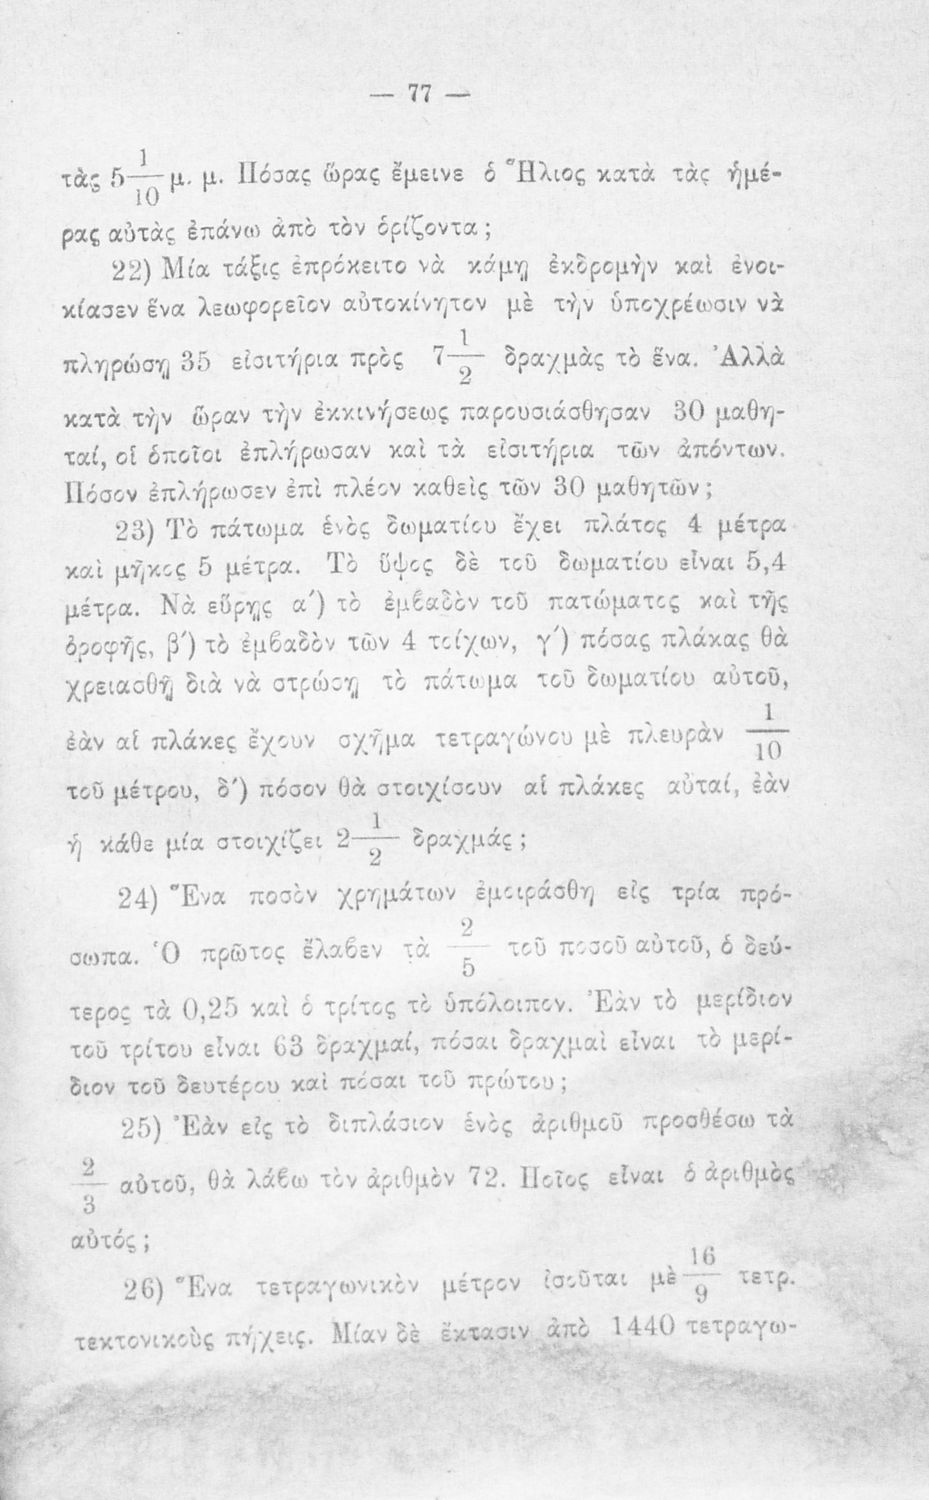 — 77 —
τὰς 5 1/10 μ. μ. Πόσας ὥρας ἔμεινε ὁ Ἥλιος κατὰ τὰς ἡμέ-
ρας αὐτὰς ἐπάνω ἀπὸ τὸν ὁρίζοντα;
22) Μία τάξις ἐπρόκειτο νὰ κάμῃ ἐκδρομὴν καὶ ἐνοι-
κίασεν ἕνα λεωφορεῖον αὐτοκίνητον μὲ τὴν ὑποχρέωσιν νὰ
πληρώσῃ 35 εἰσιτήρια πρὸς 7 1/2 δραχμὰς τὸ ἕνα. Ἀλλὰ
κατὰ τὴν ὥραν τὴν ἐκκινήσεως παρουσιάσθησαν 30 μαθη-
ταί, οἱ ὁποῖοι ἐπλήρωσαν καὶ τὰ εἰσιτήρια τῶν ἀπόντων.
Πόσον ἐπλήρωσεν ἐπὶ πλέον καθεὶς τῶν 30 μαθητῶν;
23) Τὸ πάτωμα ἑνὸς δωματίου ἔχει πλάτος 4 μέτρα
καὶ μῆκος 5 μέτρα. Τὸ ὕψος δὲ τοῦ δωματίου εἶναι 5,4
μέτρα. Νὰ εὕρῃς α΄) τὸ ἐμβαδὸν τοῦ πατώματος καὶ τῆς
ὀροφῆς, β΄) τὸ ἐμβαδὸν τῶν 4 τοίχων, γ΄) πόσας πλάκας θὰ
χρειασθῇ διὰ νὰ στρώσῃ τὸ πάτωμα τοῦ δωματίου αὐτοῦ,
ἐὰν αἱ πλάκες ἔχουν σχῆμα τετραγώνου μὲ πλευρὰν 1/10
τοῦ μέτρου, δ΄) πόσον θὰ στοιχίσουν αἱ πλάκες αὐταί, ἐὰν
ἡ κάθε μία στοιχίζει 2 1/2 δραχμάς;
24) Ἕνα ποσὸν χρημάτων ἐμοιράσθη εἰς τρία πρό-
σωπα. Ὁ πρῶτος ἔλαβεν τὰ 2/5 τοῦ ποσοῦ αὐτοῦ, ὁ δεύ-
τερος τὰ 0,25 καὶ ὁ τρίτος τὸ ὑπόλοιπον. Ἐὰν τὸ μερίδιον
τοῦ τρίτου εἶναι 63 δραχμαί, πόσαι δραχμαὶ εἶναι τὸ μερί-
διον τοῦ δευτέρου καὶ πόσαι τοῦ πρώτου;
25) Ἐὰν εἰς τὸ διπλάσιον ἑνὸς ἀριθμοῦ προσθέσω τὰ
2/3 αὐτοῦ, θὰ λάβω τὸν ἀριθμὸν 72. Ποῖος εἶναι ὁ ἀριθμὸς
αὐτός;
26) Ἕνα τετραγωνικὸν μέτρον ἰσοῦται μὲ 16/9 τετρ.
τεκτονικοὺς πήχεις. Μίαν δὲ ἔκτασιν ἀπὸ 1440 τετραγω-